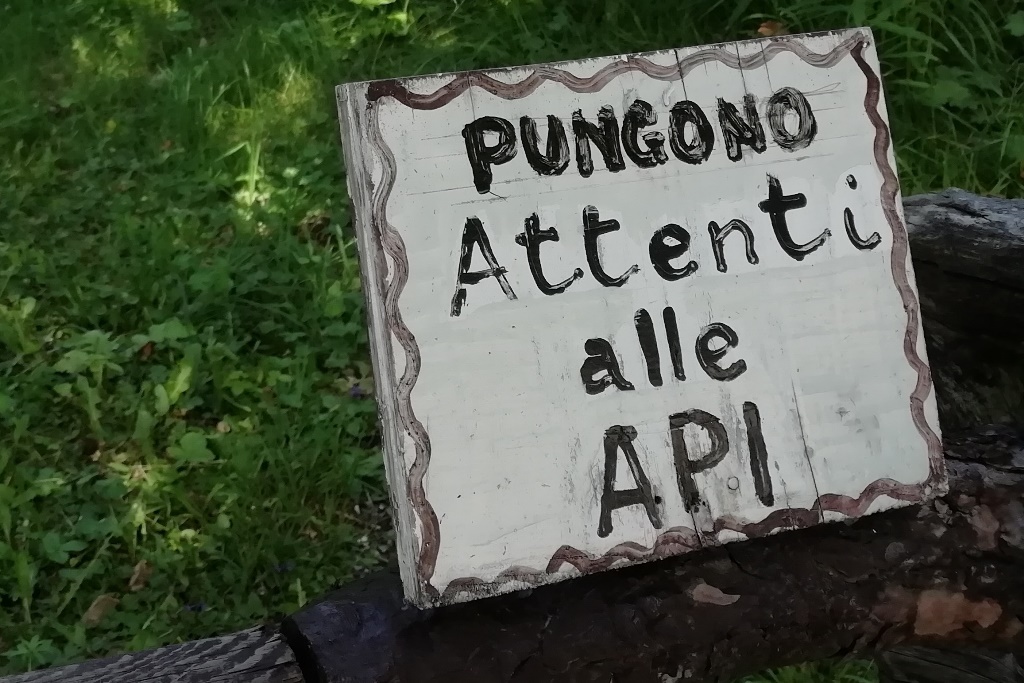 PUNGONO
Attenti
alle
API